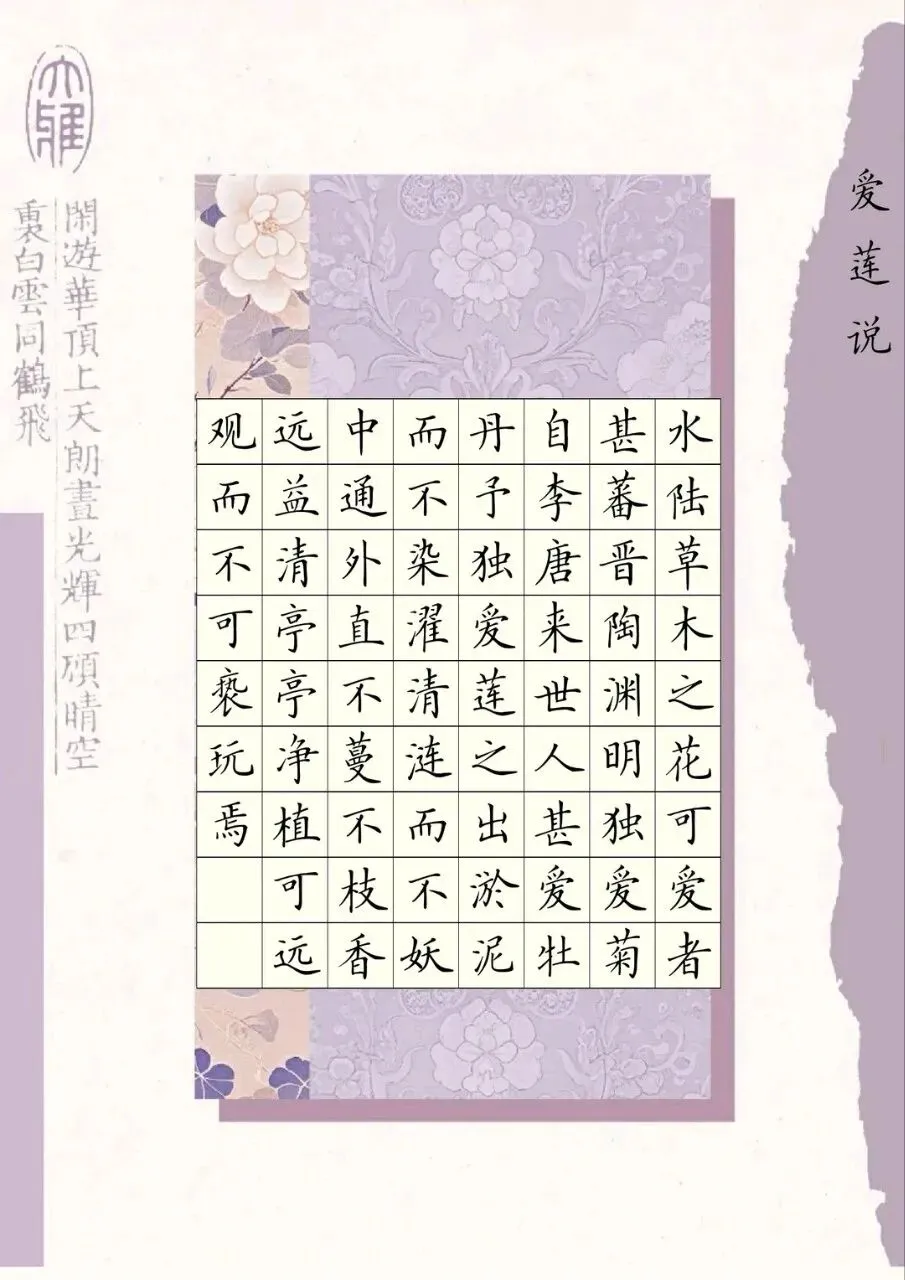 爱莲说
水陆草木之花可爱者
甚蕃晋陶渊明独爱菊
自李唐来世人甚爱牡
丹予独爱莲之出淤泥
而不染濯清涟而不妖
中通外直不蔓不枝香
远益清亭亭净植可远
观而不可亵玩焉
大雅
閑遊華頂上天朗晝光輝四碩晴空
裏白雲同鶴飛